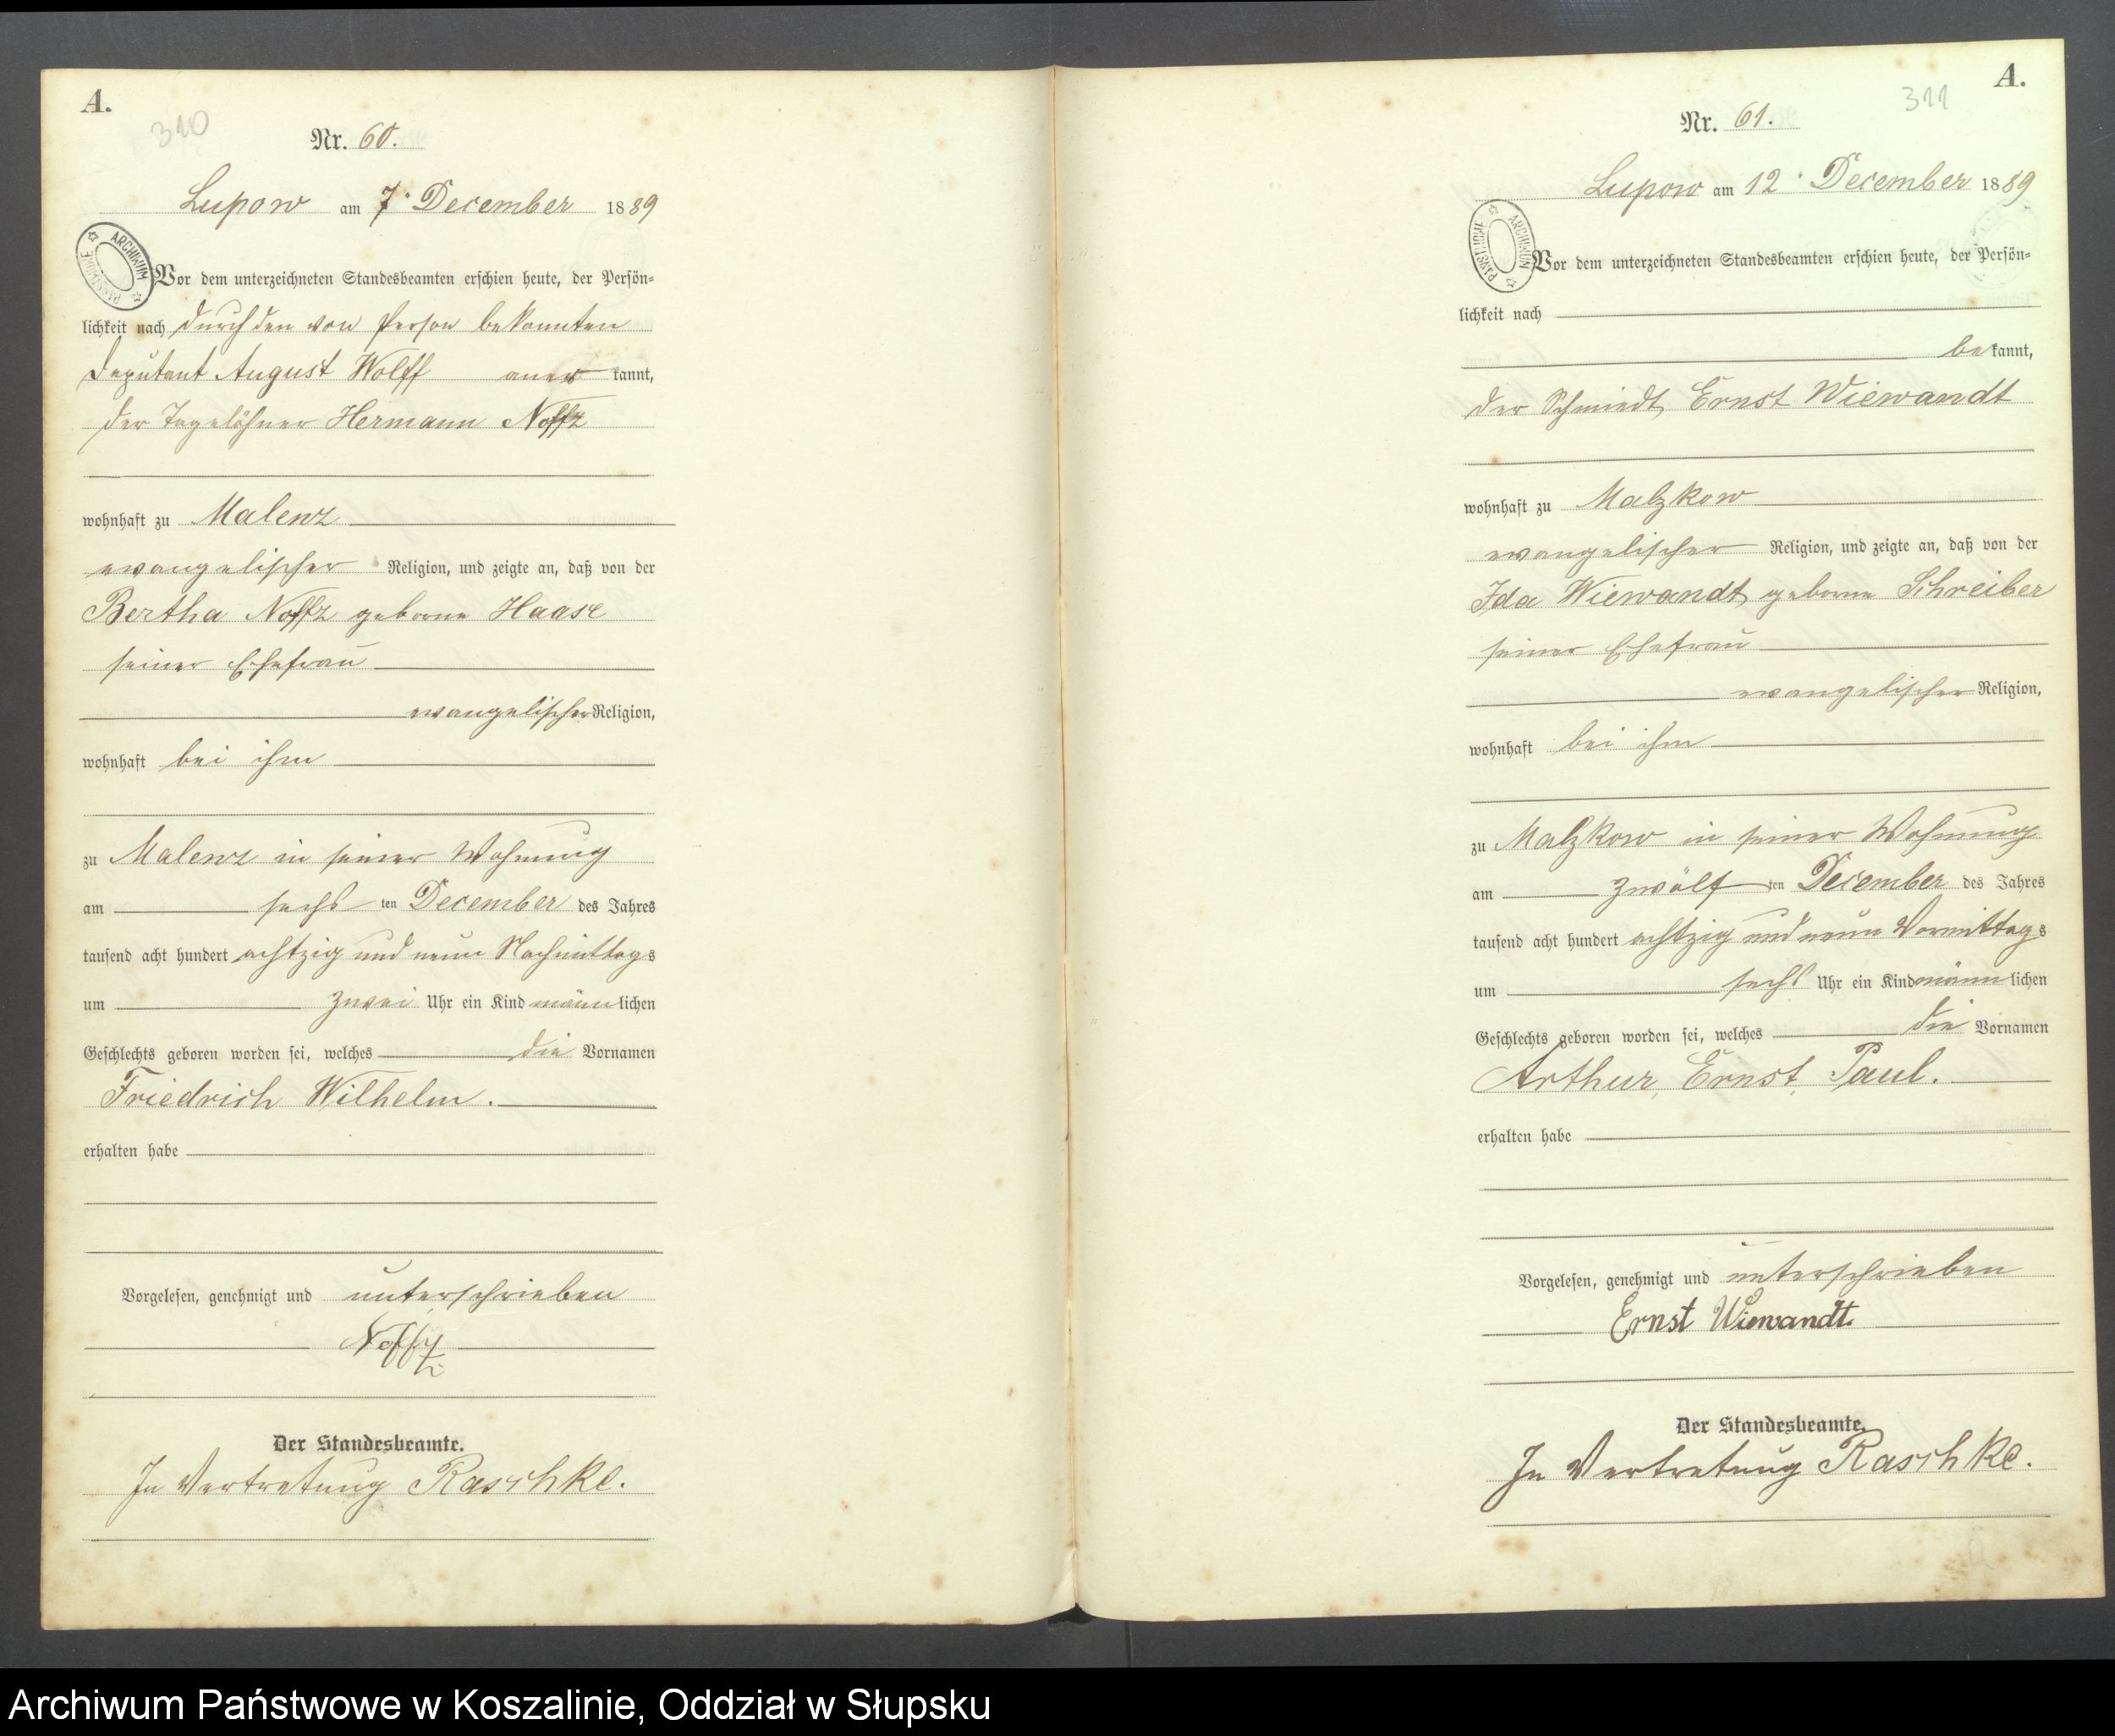 A.
310
Nr. 60.
Lupow am 7. December 1889
ARCHIWUM PAŃSTWOWE
Vor dem unterzeichneten Standesbeamten erschien heute, der Persön-
lichkeit nach durch den von Person bekannten
Deputant August Wolff aner kannt,
der Tagelöhner Hermann Noffz
wohnhaft zu Malenz
evangelischer Religion, und zeigte an, daß von der
Bertha Noffz geborne Haase
seiner Ehefrau
evangelischer Religion,
wohnhaft bei ihm
zu Malenz in seiner Wohnung
am sechs ten December des Jahres
tausend acht hundert achtzig und neun Nachmittags
um zwei Uhr ein Kind männlichen
Geschlechts geboren worden sei, welches die Vornamen
Friedrich Wilhelm.
erhalten habe
Vorgelesen, genehmigt und unterschrieben
Der Standesbeamte.
In Vertretung Raschke.
A.
311
Nr. 61.
Lupow am 12. December 1889
ARCHIWUM PAŃSTWOWE
Vor dem unterzeichneten Standesbeamten erschien heute, der Persön-
lichkeit nach
bekannt,
der Schmiedt Ernst Wiewandt
wohnhaft zu Malzkow
evangelischer Religion, und zeigte an, daß von der
Ida Wiewandt geborne Schreiber
seiner Ehefrau
evangelischer Religion,
wohnhaft bei ihm
zu Malzkow in seiner Wohnung
am zwölf ten December des Jahres
tausend acht hundert achtzig und neun Vormittags
um sechs Uhr ein Kind männlichen
Geschlechts geboren worden sei, welches die Vornamen
Arthur, Ernst, Paul.
erhalten habe
Vorgelesen, genehmigt und unterschrieben
Ernst Wiewandt.
Der Standesbeamte.
In Vertretung Raschke.
Archiwum Państwowe w Koszalinie, Oddział w Słupsku